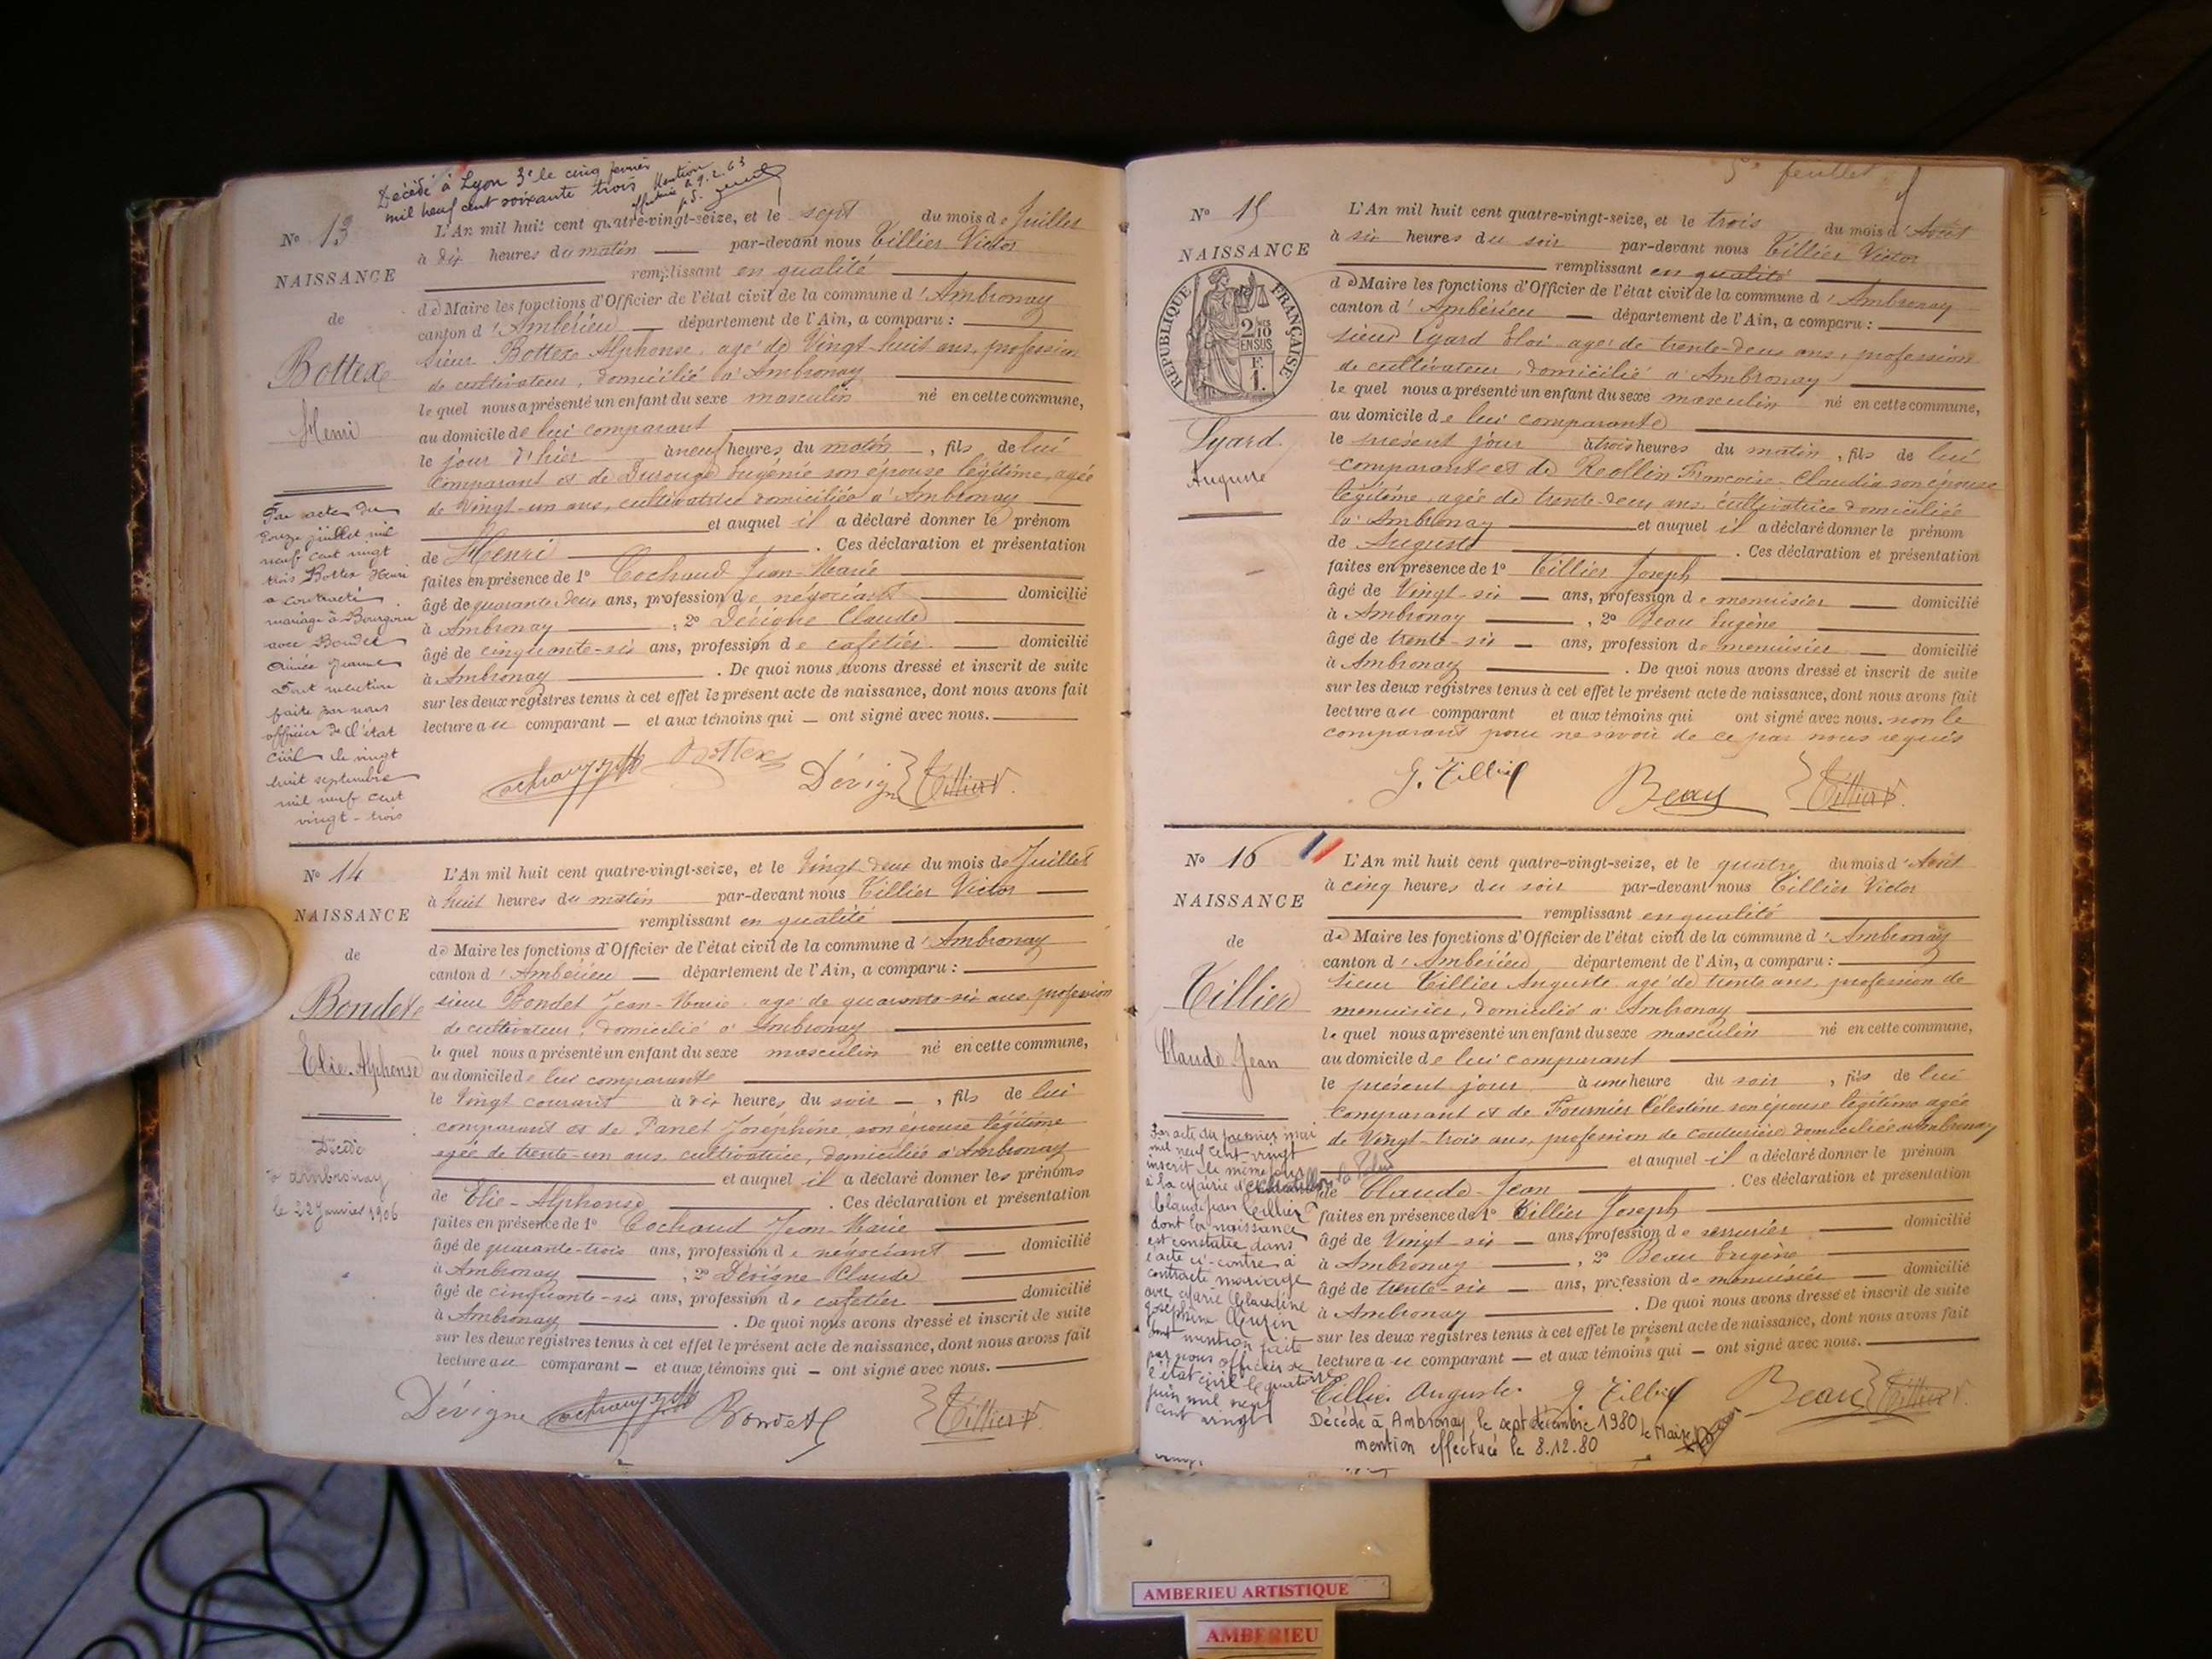 Décédé à Lyon 3e le cinq février
mil neuf cent soixante trois Mention
effectuée le 9.2.63
p.d.
No 13
NAISSANCE
de
Bottex
Henri
L'An mil huit cent quatre-vingt-seize, et le sept du mois de Juillet
à dix heures du matin par-devant nous Tillier Victor
remplissant en qualité
de Maire les fonctions d'Officier de l'état civil de la commune d'Ambronay
canton d'Ambérieu département de l'Ain, a comparu :
sieur Bottex Alphonse, agé de Vingt-huit ans, profession
de cultivateur, domicilié à Ambronay
le quel nous a présenté un enfant du sexe masculin né en cette commune,
au domicile de lui comparant
le jour d'hier à neuf heures du matin, fils de lui
comparant et de Durouge Eugénie son épouse légitime, agée
de Vingt-un ans, cultivatrice domiciliée à Ambronay
et auquel il a déclaré donner le prénom
de Henri. Ces déclaration et présentation
faites en présence de 1o Cochaud Jean-Marie
âgé de quarante deux ans, profession de négociant domicilié
à Ambronay, 2o Dévigne Claude
âgé de cinquante-six ans, profession de cafetier domicilié
à Ambronay. De quoi nous avons dressé et inscrit de suite
sur les deux registres tenus à cet effet le présent acte de naissance, dont nous avons fait
lecture au comparant et aux témoins qui ont signé avec nous.
Bottex Dévigne Tillier V.
Par acte du
douze juillet mil
neuf cent vingt
trois Bottex Henri
a contracté
mariage à Bourgoin
avec Boudet
Aimée Jeanne
Dont mention
faite par nous
officier de l'état
civil le vingt
huit septembre
mil neuf cent
vingt-trois
No 14
NAISSANCE
de
Bondet
Elie-Alphonse
L'An mil huit cent quatre-vingt-seize, et le Vingt deux du mois de Juillet
à huit heures du matin par-devant nous Tillier Victor
remplissant en qualité
de Maire les fonctions d'Officier de l'état civil de la commune d'Ambronay
canton d'Ambérieu département de l'Ain, a comparu :
sieur Bondet Jean-Marie agé de quarante-six ans, profession
de cultivateur, domicilié à Ambronay
le quel nous a présenté un enfant du sexe masculin né en cette commune,
au domicile de lui comparant
le Vingt courant à dix heures du soir, fils de lui
comparant et de Panet Joséphine, son épouse légitime
agée de trente-un ans, cultivatrice, domiciliée à Ambronay
et auquel il a déclaré donner les prénoms
de Elie-Alphonse. Ces déclaration et présentation
faites en présence de 1o Cochaud Jean-Marie
âgé de quarante-trois ans, profession de négociant domicilié
à Ambronay, 2o Dévigne Claude
âgé de cinquante-six ans, profession de cafetier domicilié
à Ambronay. De quoi nous avons dressé et inscrit de suite
sur les deux registres tenus à cet effet le présent acte de naissance, dont nous avons fait
lecture au comparant et aux témoins qui ont signé avec nous.
Dévigne Bondet Tillier V.
Décédé
à Ambronay
le 22 Janvier 1906
5e feuillet
No 15
NAISSANCE
RÉPUBLIQUE FRANÇAISE
2 10mes
EN SUS
F.
1.
Lyard
Auguste
L'An mil huit cent quatre-vingt-seize, et le trois du mois d'Août
à six heures du soir par-devant nous Tillier Victor
remplissant en qualité
de Maire les fonctions d'Officier de l'état civil de la commune d'Ambronay
canton d'Ambérieu département de l'Ain, a comparu :
sieur Lyard Eloi agé de trente-deux ans, profession
de cultivateur, domicilié à Ambronay
le quel nous a présenté un enfant du sexe masculin né en cette commune,
au domicile de lui comparant
le présent jour à trois heures du matin, fils de lui
comparant et de Reollin Françoise-Claudia son épouse
légitime, agée de trente-deux ans, cultivatrice domiciliée
à Ambronay et auquel il a déclaré donner le prénom
de Auguste. Ces déclaration et présentation
faites en présence de 1o Tillier Joseph
âgé de Vingt-six ans, profession de menuisier domicilié
à Ambronay, 2o Beau Eugène
âgé de trente-six ans, profession de menuisier domicilié
à Ambronay. De quoi nous avons dressé et inscrit de suite
sur les deux registres tenus à cet effet le présent acte de naissance, dont nous avons fait
lecture au comparant et aux témoins qui ont signé avec nous. non le
comparant pour ne savoir de ce par nous requis
J. Tillier Beau Tillier V.
No 16
NAISSANCE
de
Tillier
Claude Jean
L'An mil huit cent quatre-vingt-seize, et le quatre du mois d'Août
à cinq heures du soir par-devant nous Tillier Victor
remplissant en qualité
de Maire les fonctions d'Officier de l'état civil de la commune d'Ambronay
canton d'Ambérieu département de l'Ain, a comparu :
sieur Tillier Auguste agé de trente ans, profession de
menuisier, domicilié à Ambronay
le quel nous a présenté un enfant du sexe masculin né en cette commune,
au domicile de lui comparant
le présent jour à une heure du soir, fils de lui
comparant et de Fournier Célestine son épouse légitime agée
de Vingt-trois ans, profession de couturière domiciliée à Ambronay
et auquel il a déclaré donner le prénom
de Claude-Jean. Ces déclaration et présentation
faites en présence de 1o Tillier Joseph
âgé de Vingt-six ans, profession de serrurier domicilié
à Ambronay, 2o Beau Eugène
âgé de trente-six ans, profession de menuisier domicilié
à Ambronay. De quoi nous avons dressé et inscrit de suite
sur les deux registres tenus à cet effet le présent acte de naissance, dont nous avons fait
lecture au comparant et aux témoins qui ont signé avec nous.
Tillier Auguste J. Tillier Beau Tillier V.
Par acte du premier mai
mil neuf cent vingt
inscrit le même jour
à la mairie de Chatillon la Palud
Claude Jean Tillier
dont la naissance
est constatée dans
l'acte ci-contre a
contracté mariage
avec Marie Claudine
Joséphine
Dont mention faite
par nous officier de
l'état civil le quatorze
juin mil neuf
cent vingt
Décédé à Ambronay le sept décembre 1980 le Maire
mention effectuée le 8.12.80
AMBERIEU ARTISTIQUE
AMBERIEU